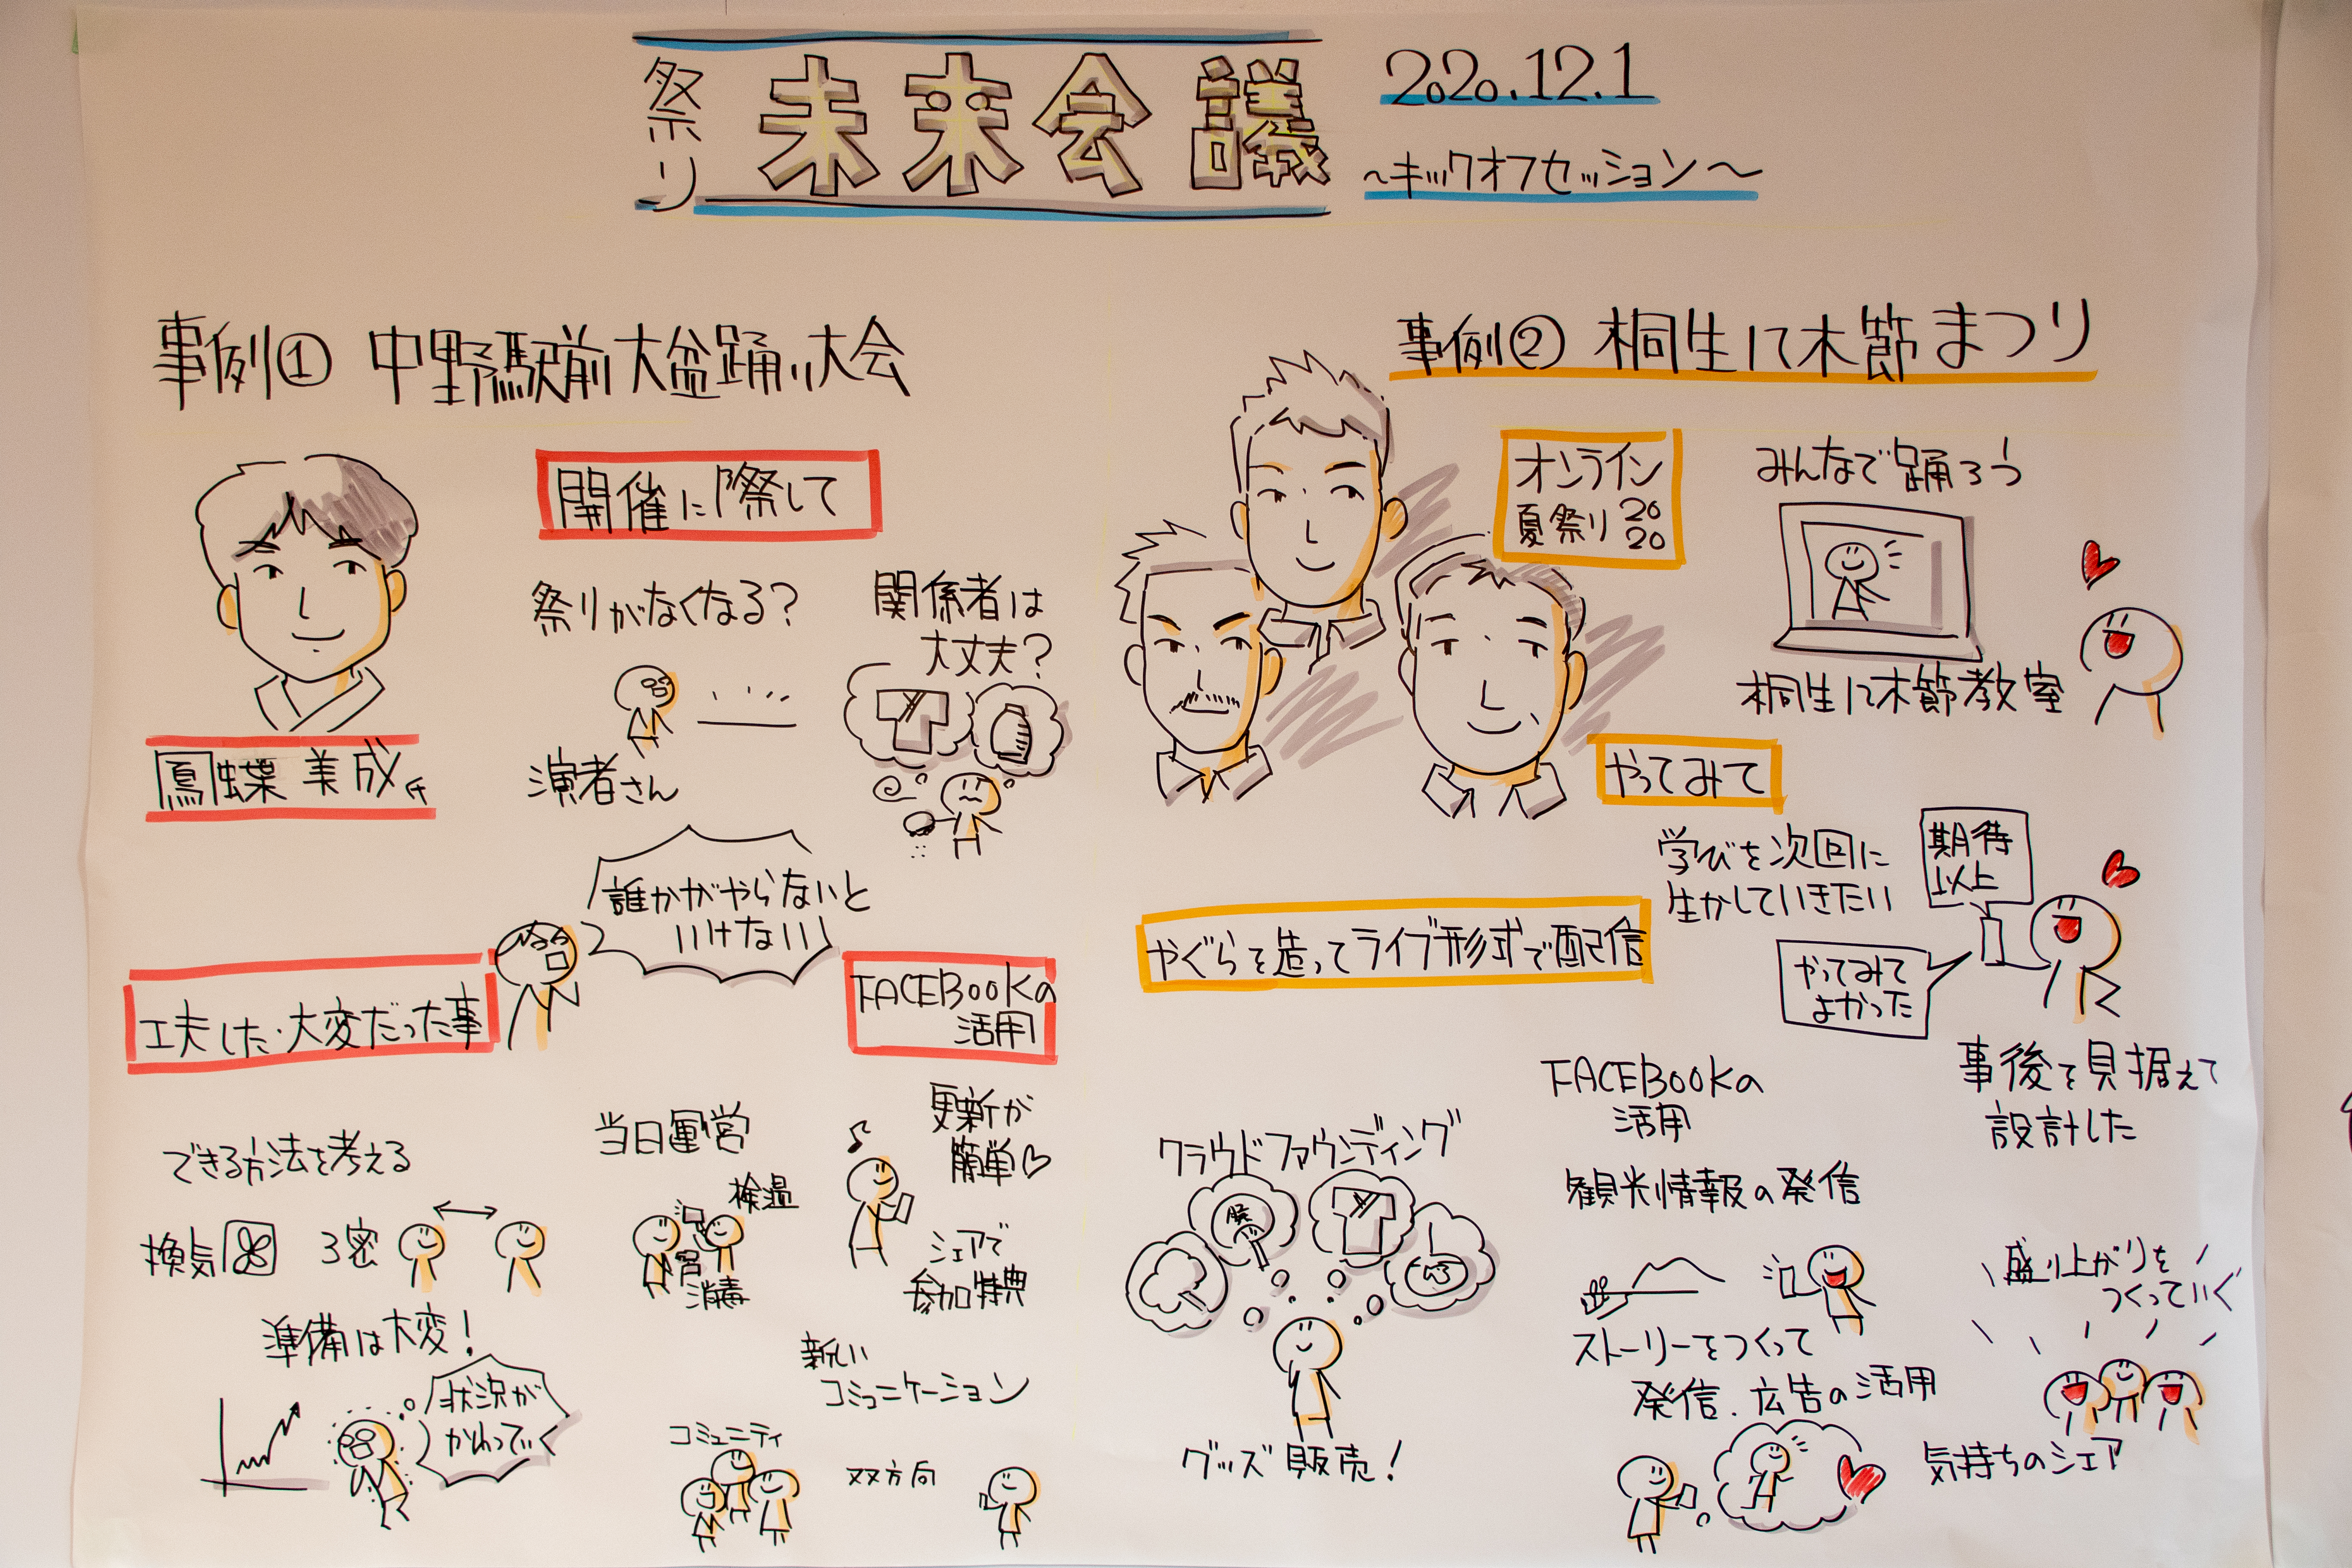 祭り
未来会議
2020.12.1
～キックオフセッション～
事例① 中野駅前大盆踊り大会
開催に際して
祭りがなくなる?
関係者は
大丈夫?
鳳蝶 美成氏
演者さん
誰かがやらないと
いけない!
工夫した・大変だった事
FACEBOOKの
活用
できる方法を考える
換気
3密
当日運営
検温
消毒
更新が
簡単♡
シェアで
参加特典
準備は大変!
状況が
かわっていく
新しい
コミュニケーション
コミュニティ
双方向
事例② 桐生八木節まつり
オンライン
夏祭り 2020
みんなで踊ろう
桐生八木節教室
やってみて
学びを次回に
生かしていきたい
期待
以上
やってみて
よかった
やぐらを造ってライブ形式で配信
事後を見据えて
設計した
クラウドファウンディング
グッズ販売!
FACEBOOKの
活用
観光情報の発信
ストーリーをつくって
発信.広告の活用
盛り上がりを
つくっていく
気持ちのシェア